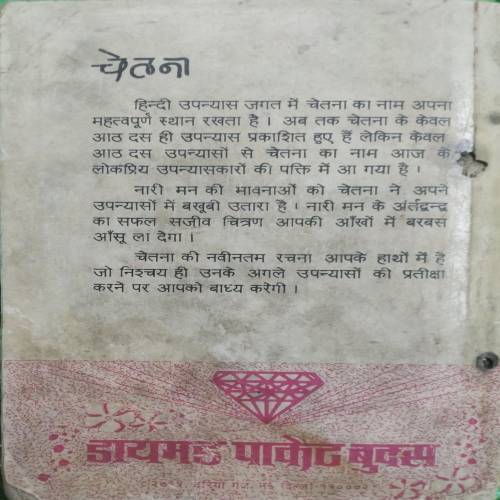 चेतना
हिन्दी उपन्यास जगत में चेतना का नाम अपना
महत्वपूर्ण स्थान रखता है । अब तक चेतना के केवल
आठ दस ही उपन्यास प्रकाशित हुए हैं लेकिन केवल
आठ दस उपन्यासों से चेतना का नाम आज के
लोकप्रिय उपन्यासकारों की पंक्ति में आ गया है ।
नारी मन की भावनाओं को चेतना ने अपने
उपन्यासों में बखूबी उतारा है । नारी मन के अंर्तद्वन्द्व
का सफल सजीव चित्रण आपकी आँखों में बरबस
आँसू ला देगा ।
चेतना की नवीनतम रचना आपके हाथों में है
जो निश्चय ही उनके अगले उपन्यासों की प्रतीक्षा
करने पर आपको बाध्य करेगी ।
डायमंड पाकेट बुक्स
दरिया गंज, नई दिल्ली